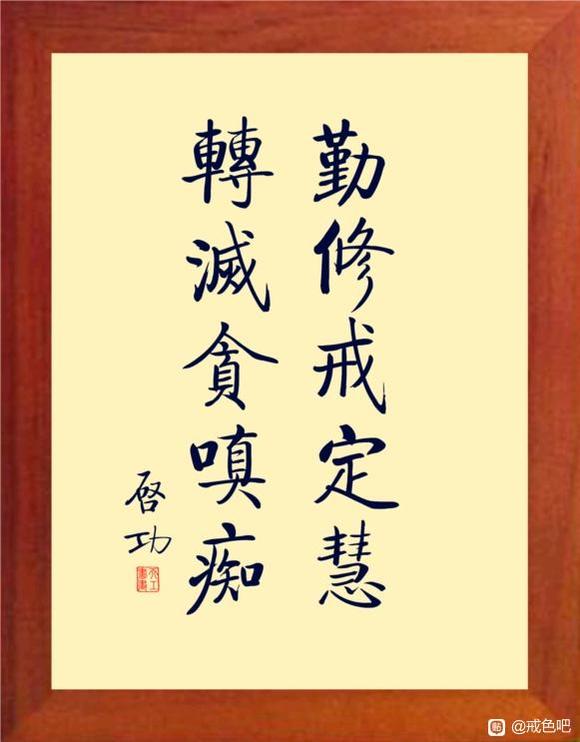 勤修戒定慧
轉滅貪嗔痴
啓功
@戒色吧